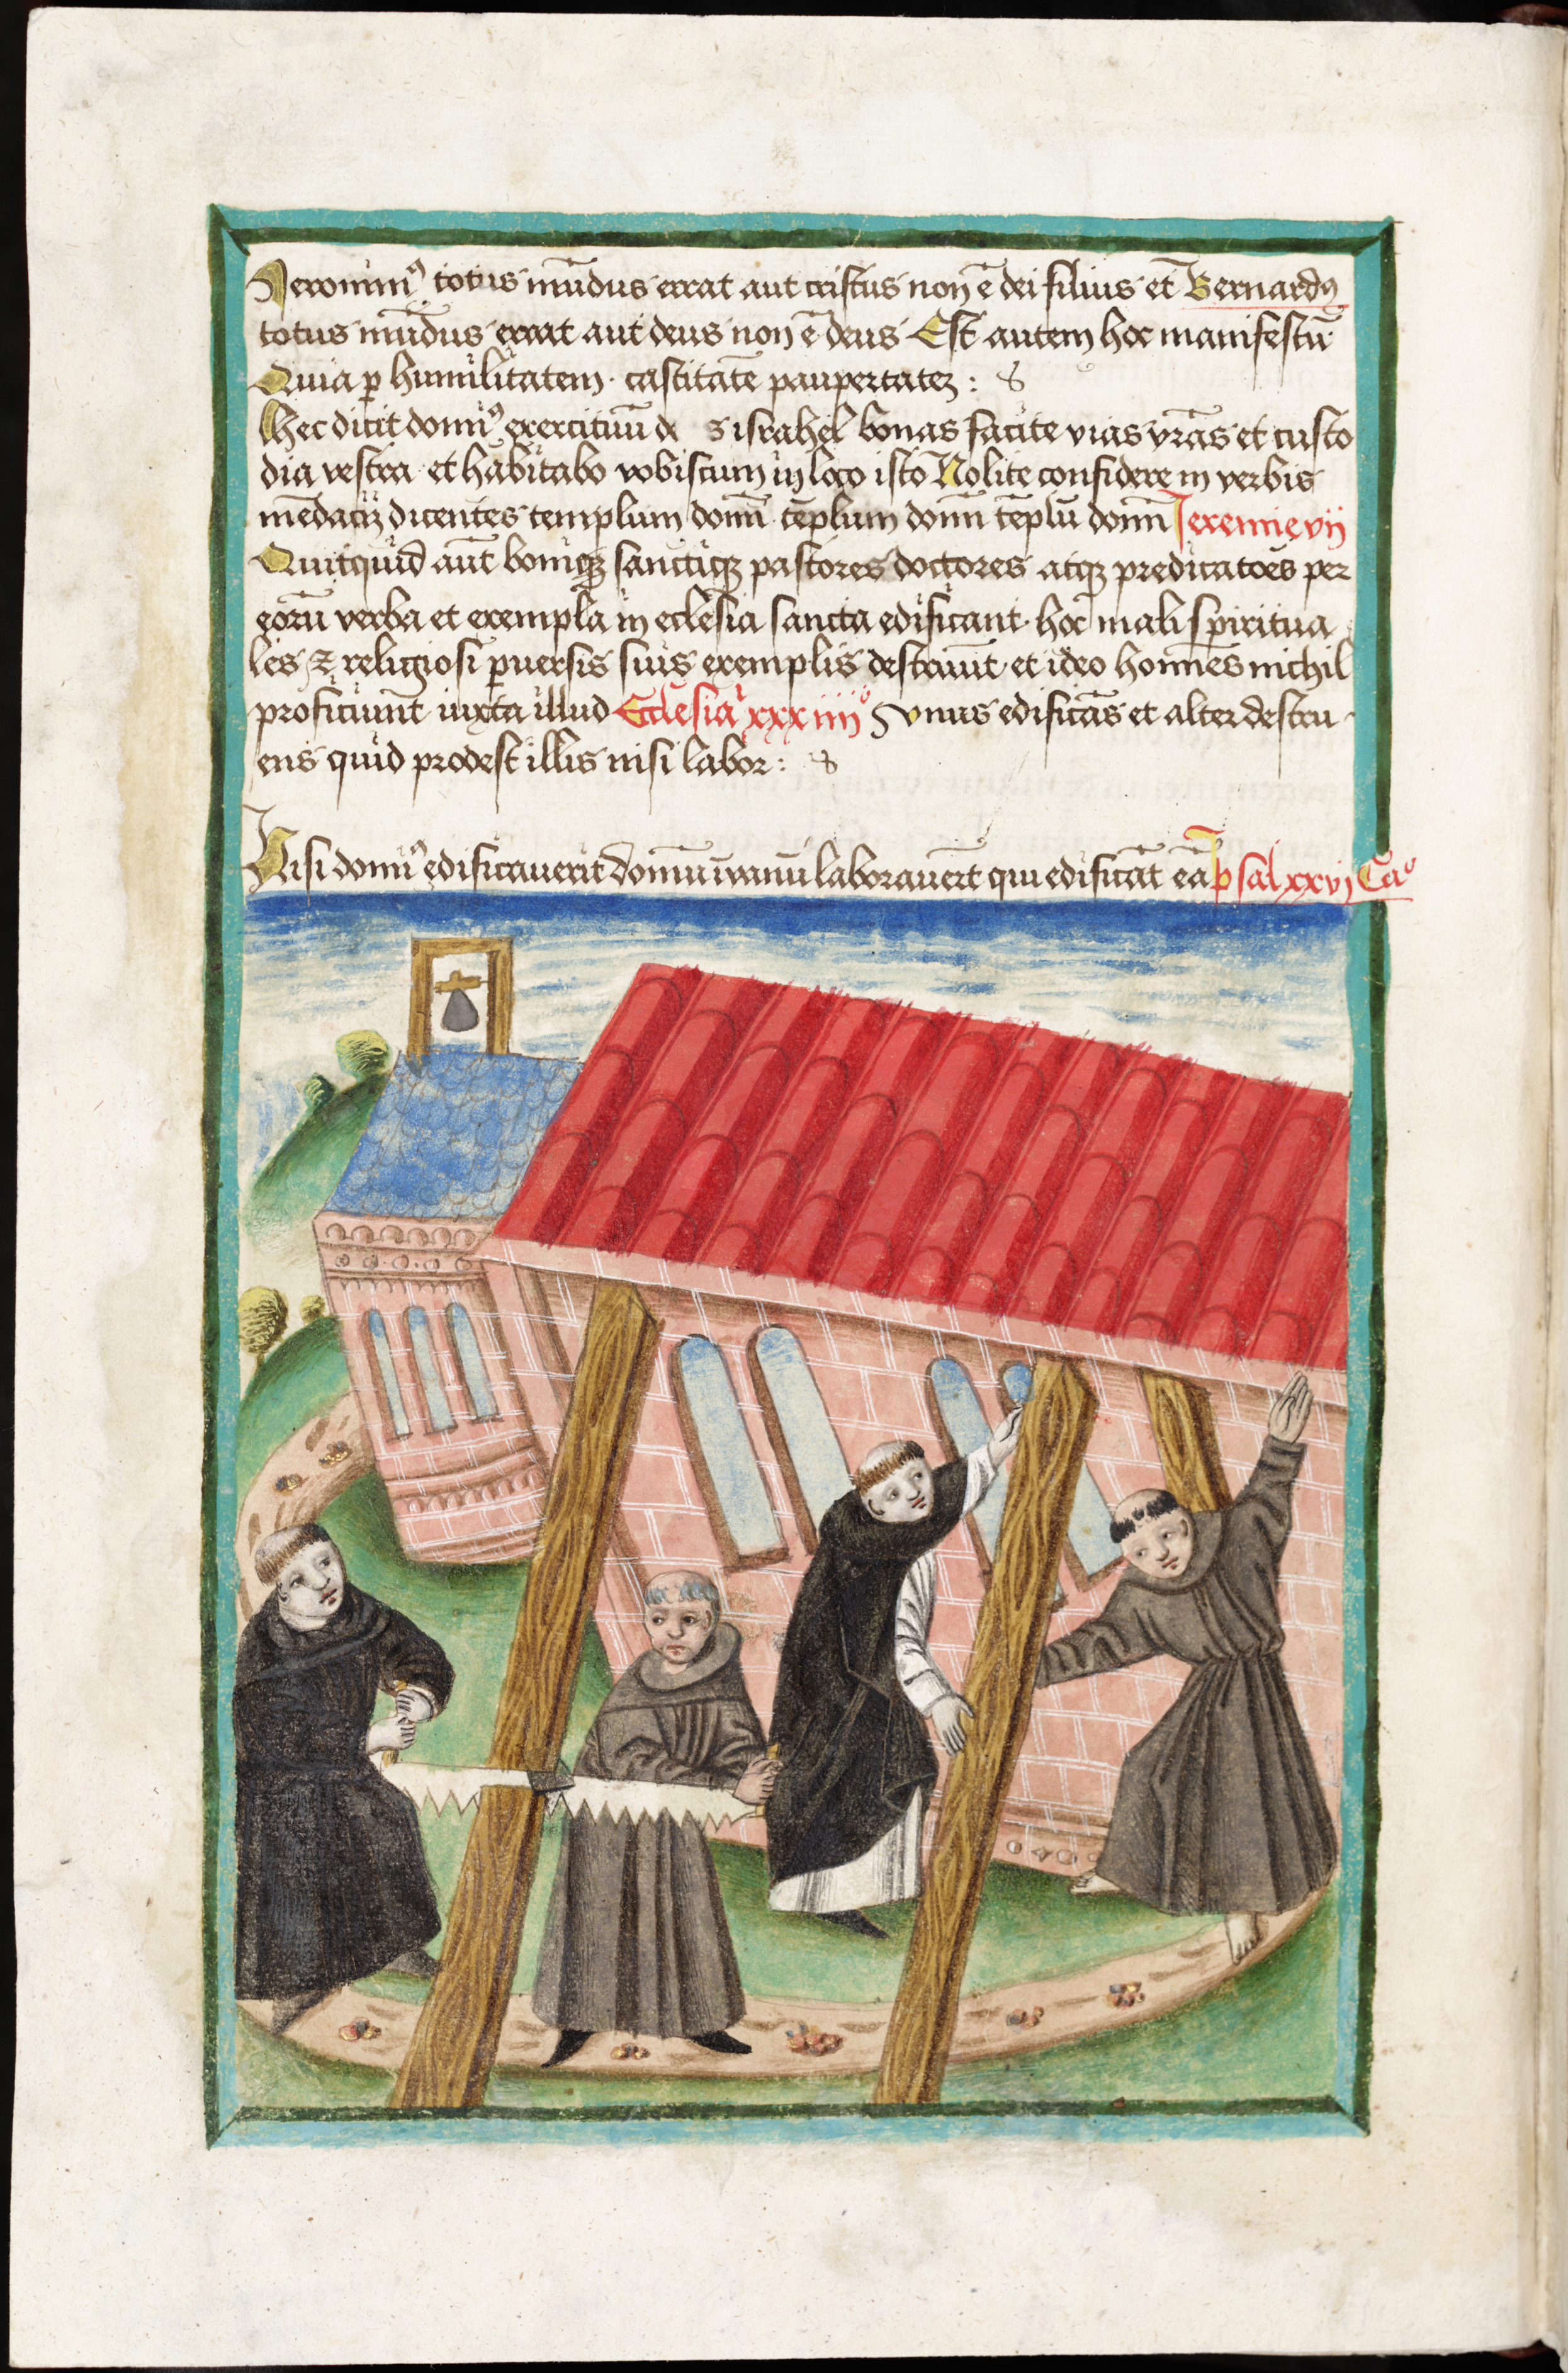 Jeronimꝰ totus mūdus errat aut cristus non ē dei filius et Bernardꝰ
totus mūdus errat aut deus non ē deus Est autem hoc manifestū
Quia ꝑ humilitatem · castitatē paupertatez :
Hec dicit domīꝰ exercituū de s israhel bonas facite vias vr̄as et custo
dia vestra et habitabo vobiscum in loco isto Nolite confidere in verbis
mēdacij dicentes templum domī tēplum domī tēplū domī Jeremie vij
Quitquid aūt boniqꝫ sanctiqꝫ pastores doctores atqꝫ predicatoēs per
eorū verba et exempla in eclesia sancta edificant · hoc mali spiritua
les ⁊ religiosi ꝑuersis suis exemplis destruūt et ideo homēs nichil
proficiunt iuxta illud Eclesia xxxiiiiº vnus edificās et alter destru
ens quid prodest illis nisi labor :
Nisi domīꝰ edificauerit domū īvanū laborauer̄t qui edificāt eā psal xxvj Caº